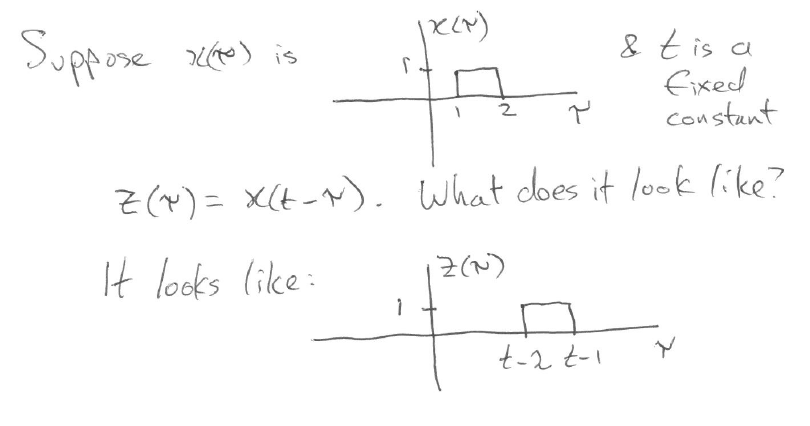 Suppose x(τ) is
x(τ)
1
1 2 τ
& t is a
fixed
constant
z(τ) = x(t-τ). What does it look like?
It looks like:
z(τ)
1
t-2 t-1 τ